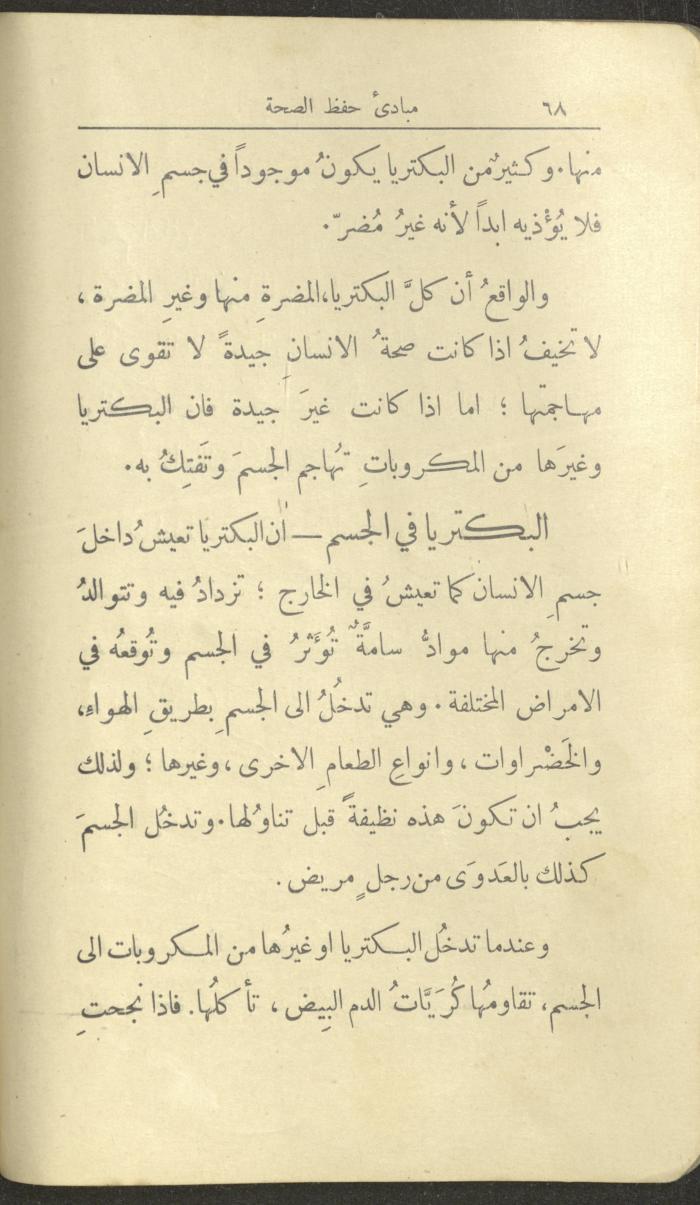 ٦٨
مبادئ حفظ الصحة
منها. وكثيرٌ من البكتريا يكونُ موجوداً في جسمِ الانسان
فلا يُؤْذيه ابداً لأنه غيرُ مُضرّ.
والواقعُ أن كلَّ البكتريا، المضرةِ منها وغيرِ المضرة ،
لا تخيفُ اذا كانت صحةُ الانسانِ جيدةً لا تقوى على
مهاجمتها ؛ اما اذا كانت غيرَ جيدة فان البكتريا
وغيرَها من المكروباتِ تُهاجم الجسمَ وتَفتِكُ به.
البكتريا في الجسم — اُن البكتريا تعيشُ داخلَ
جسمِ الانسان كما تعيشُ في الخارج ؛ تزدادُ فيه وتتوالدُ
وتخرجُ منها موادُّ سامَّةٌ تُوَثرُ في الجسم وتُوقعُه في
الامراض المختلفة . وهي تدخُلُ الى الجسمِ بطريقِ الهواءِ،
والخَضْراوات ، وانواعِ الطعامِ الاخرى ، وغيرها ؛ ولذلك
يجبُ ان تكونَ هذه نظيفةً قبل تناوُلها. وتدخُل الجسمَ
كذلك بالعَدوَى من رجلٍ مريض .
وعندما تدخُل البكتريا او غيرُها من المكروبات الى
الجسم، تقاومُها كُرَيَّاتُ الدم البِيض ، تأكلُها. فاذا نجحتِ